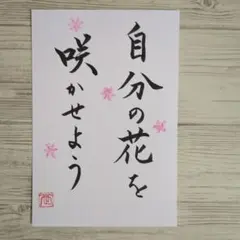 自分の花を
咲かせよう